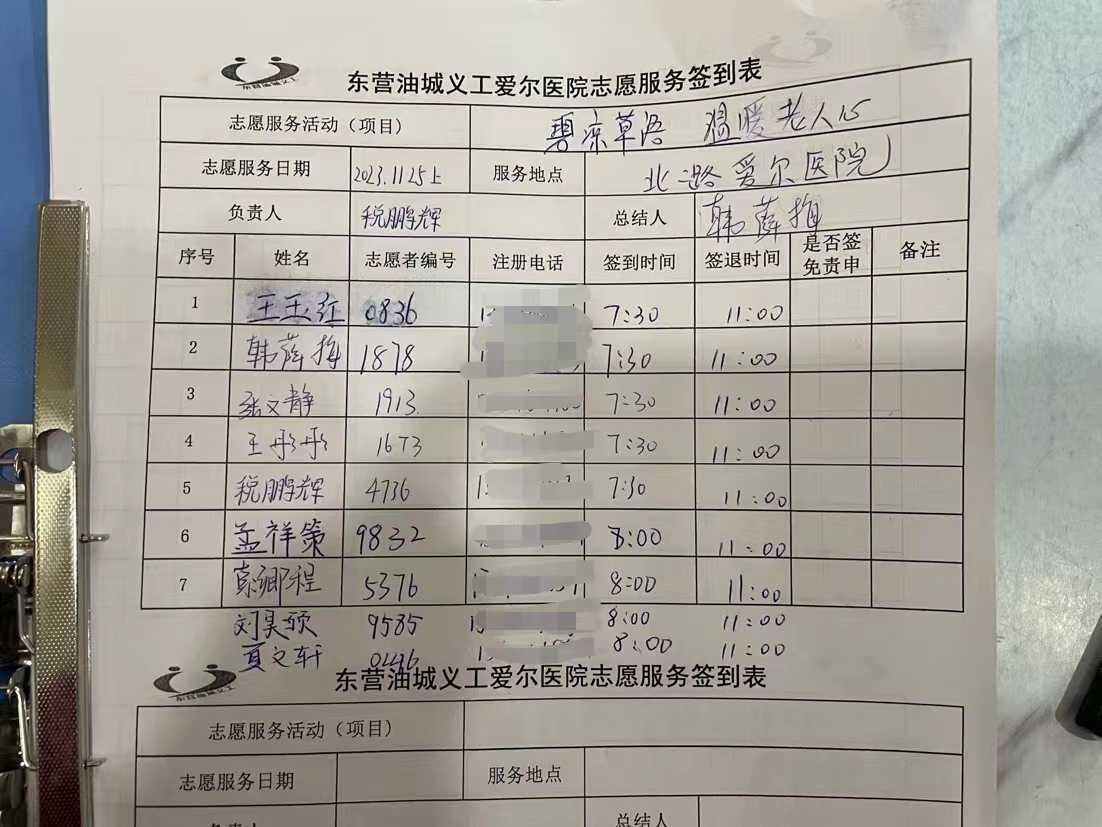 东营油城义工
东营油城义工爱尔医院志愿服务签到表
志愿服务活动（项目） 碧凉草语 温暖老人心
志愿服务日期 2023.11.25上 服务地点 北二路爱尔医院
负责人 税鹏辉 总结人 韩薛梅
序号 姓名 志愿者编号 注册电话 签到时间 签退时间 是否签免责申 备注
1 王玉红 0836 7:30 11:00
2 韩薛梅 1878 7:30 11:00
3 张文静 1913 7:30 11:00
4 王彤彤 1673 7:30 11:00
5 税鹏辉 4736 7:30 11:00
6 孟祥策 9832 8:00 11:00
7 程 5376 8:00 11:00
刘昊硕 9585 8:00 11:00
夏文轩 0446 8:00 11:00
东营油城义工
东营油城义工爱尔医院志愿服务签到表
志愿服务活动（项目）
志愿服务日期 服务地点
负责人 总结人